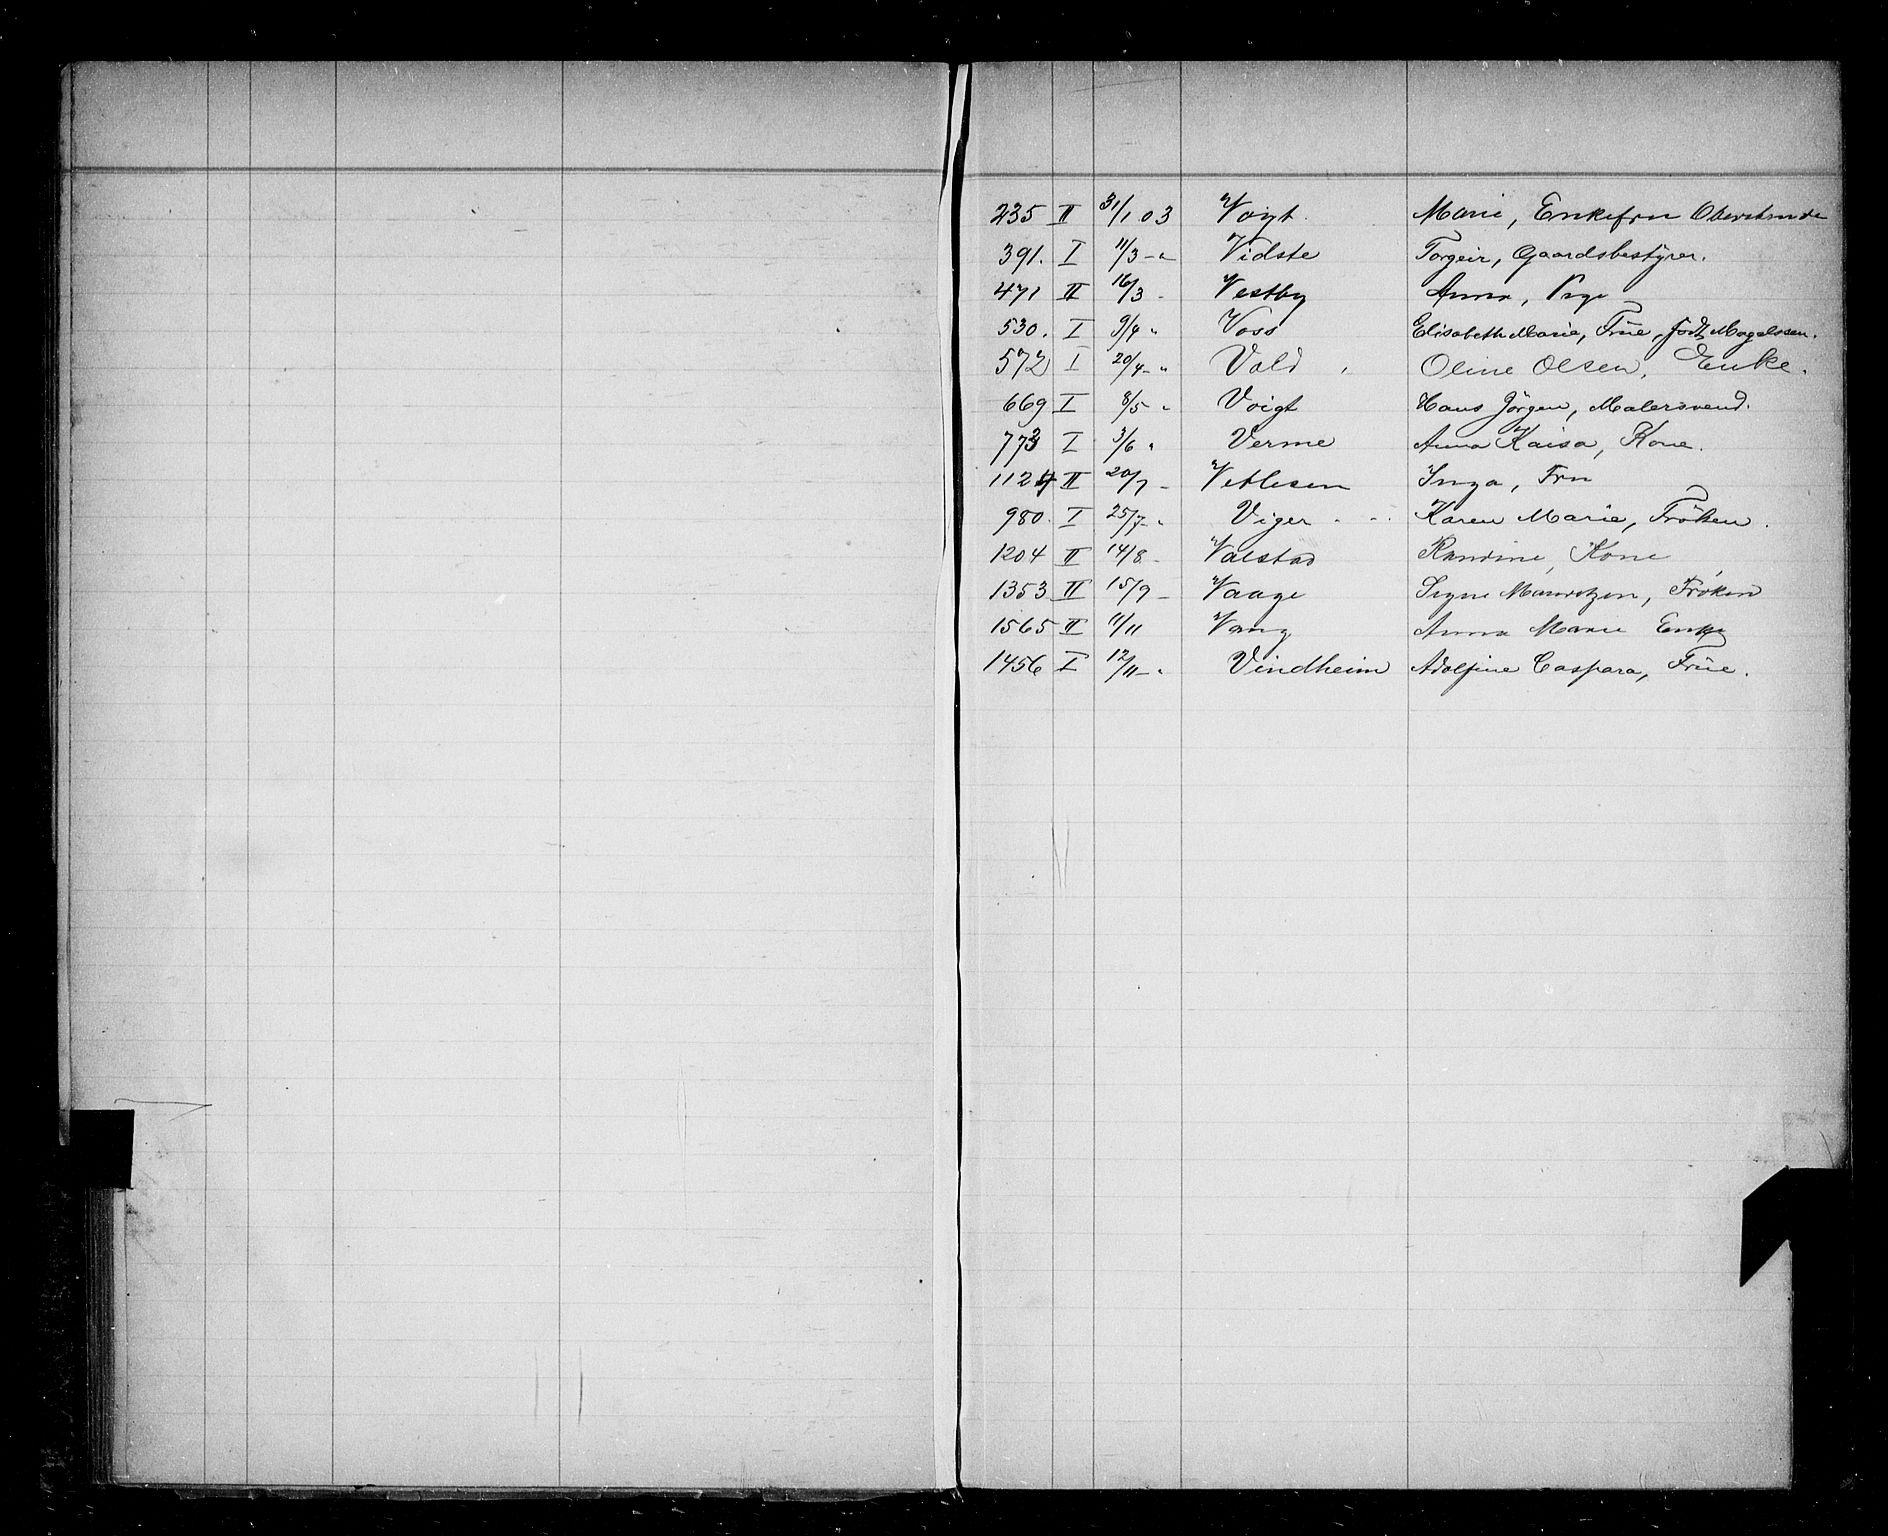 235 II 31/1 03 Voigt. Marie, Enkefru
391. I 11/3 -" Vidste Torgeir, Gaardsbestyrer.
471 II 16/3 - Vestby Anna, Pige
530. I 9/4 " Voss Elisabeth Marie, Frue, født Magelssen.
572 I 20/4 -" Vold, Oline Olsen, Enke.
669 I 8/5 -" Voigt Hans Jörgen, Malersvend.
773 I 3/6 " Verme Anna Kaisa, Kone.
1124 II 20/7 - Vetlesen Inga, Fru
980. I 25/7 -" Viger Karen Marie, Fröken.
1204 II 14/8 - Valstad Randine, Kone
1353 II 15/9 - Vaage Signe Mauritzen, Frøken
1565 II 11/11 Vang Anna Marie Enke
1456 I 12/11 -" Vindheim Adolfine Caspara, Frue.